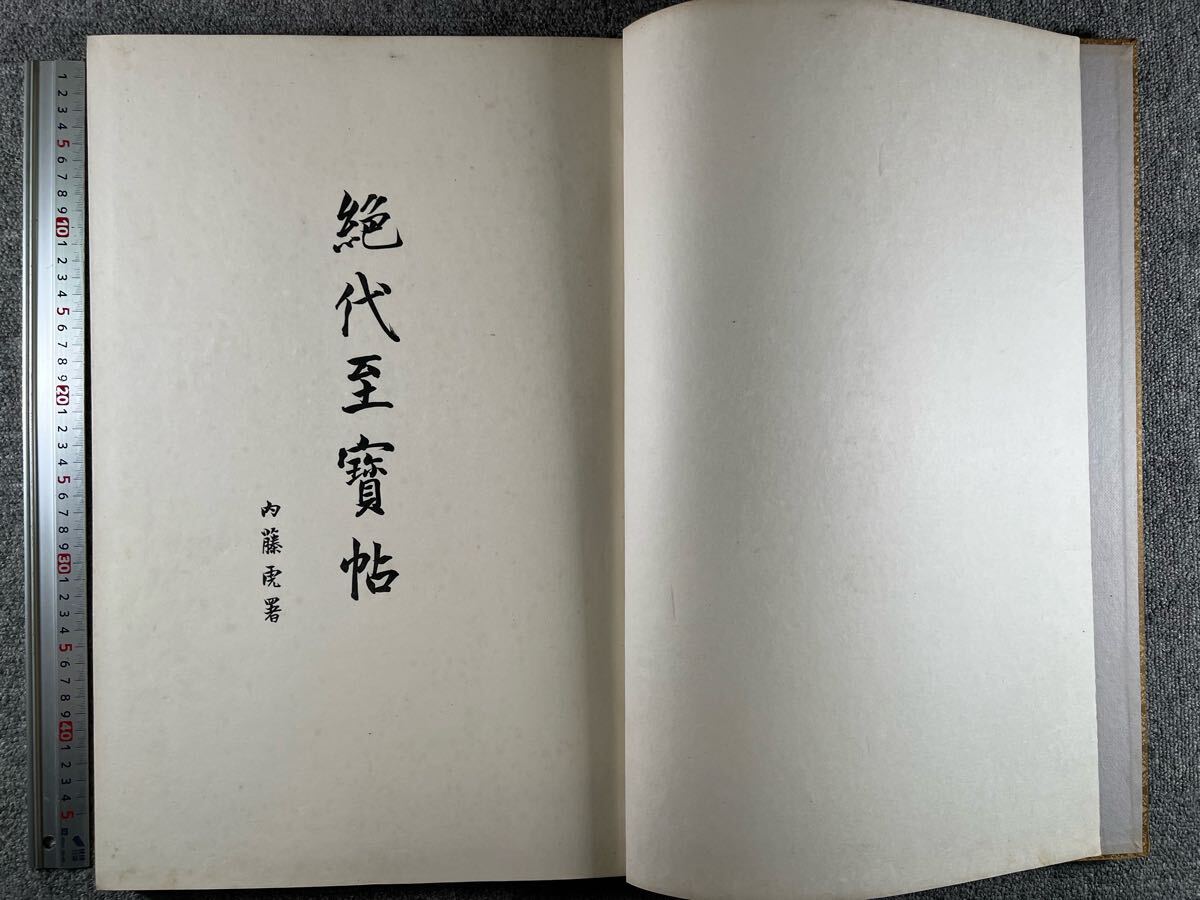 絶代至寶帖
内藤虎署
1 2 3 4 5 6 7 8 9 10 1 2 3 4 5 6 7 8 9 20 1 2 3 4 5 6 7 8 9 30 1 2 3 4 5 6 7 8 9 40 1 2 3 4 5